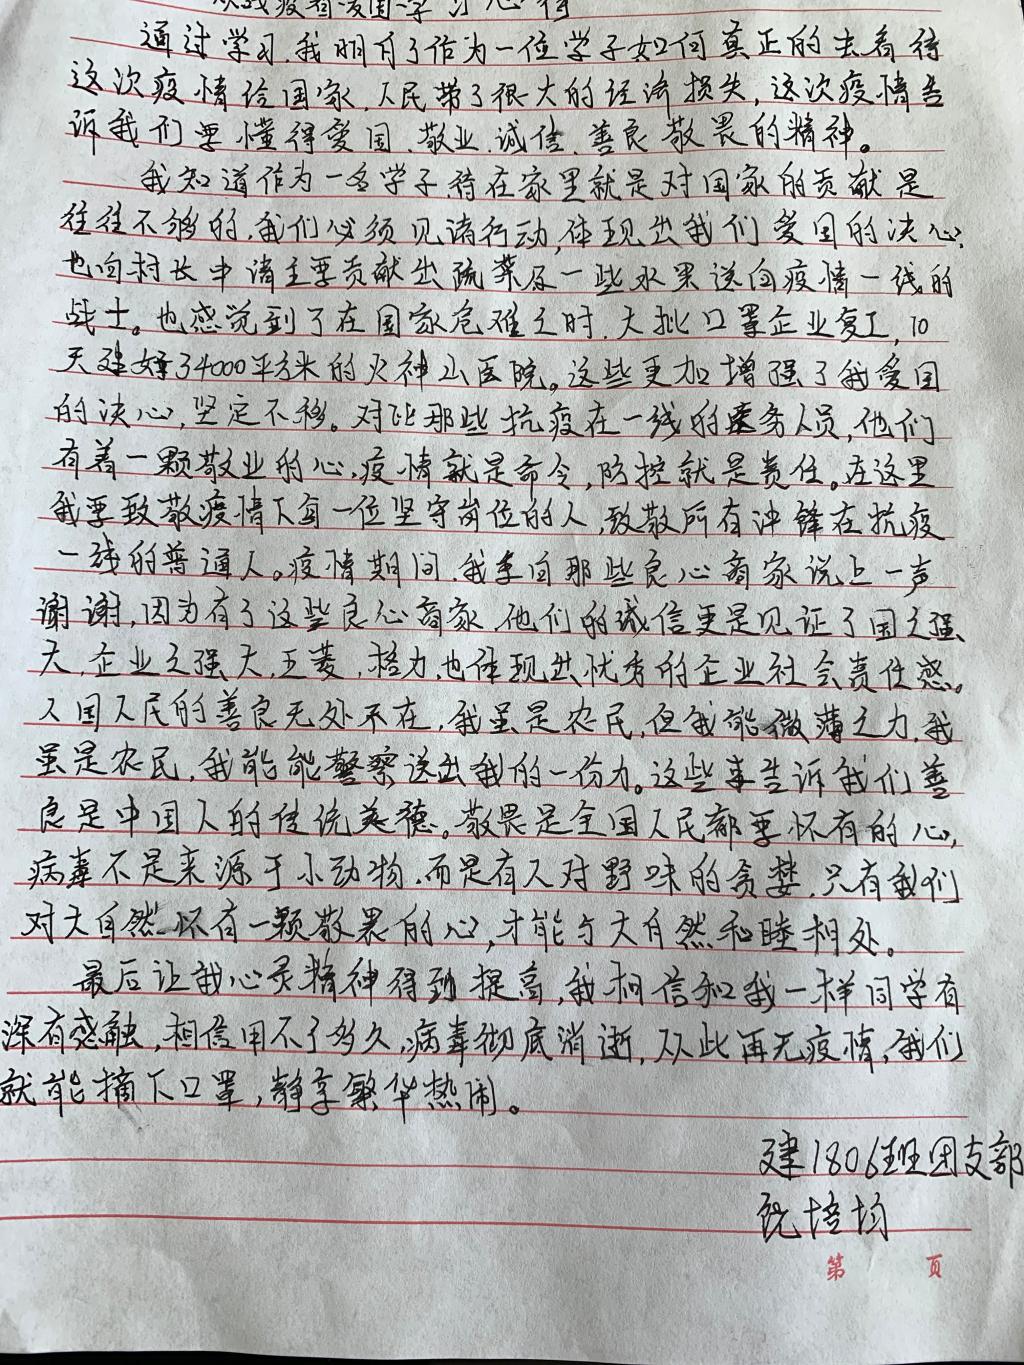 从战疫看爱国 学习心得
通过学习,我明月了作为一位学子如何真正的去看待
这次疫情给国家,人民带了很大的经济损失,这次疫情告
诉我们要懂得爱国、敬业、诚信、善良、敬畏的精神。
我知道作为一名学子,待在家里就是对国家的贡献是
往往不够的,我们必须见诸行动,体现出我们爱国的决心,
也向村长申请主要贡献出蔬菜及一些水果送向疫情一线的
战士。也感觉到了在国家危难之时,大批口罩企业复工,10
天建好34000平方米的火神山医院。这些更加增强了我爱国
的决心,坚定不移。对比那些抗疫在一线的医务人员,他们
有着一颗敬业的心,疫情就是命令,防控就是责任。在这里
我要致敬疫情下每一位坚守岗位的人,致敬所有冲锋在抗疫
一线的普通人。疫情期间,我要向那些良心商家说上一声
谢谢,因为有了这些良心商家,他们的诚信更是见证了国之强
大,企业之强大,五菱,格力,也体现出优秀的企业社会责任感。
人国人民的善良无处不在,我虽是农民,但我能微薄之力,我
虽是农民,我能能警察送出我的一份力。这些事告诉我们善
良是中国人的传统美德。敬畏是全国人民都要怀有的心,
病毒不是来源于小动物,而是有人对野味的贪婪,只有我们
对大自然怀有一颗敬畏的心,才能与大自然和睦相处。
最后让我心灵精神得到提高,我相信和我一样同学有
深有感触,相信用不了多久,病毒彻底消逝,从此再无疫情,我们
就能摘下口罩,静享繁华热闹。
建1806班团支部
阮培均
第 页